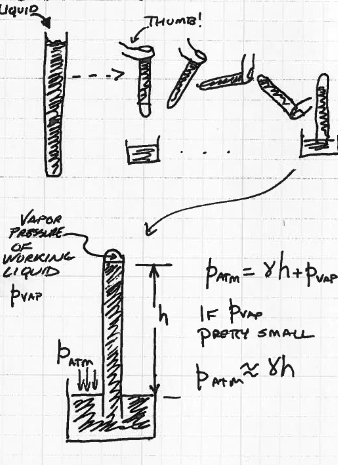 LIQUID
THUMB!
VAPOR
PRESSURE
OF
WORKING
LIQUID
pVAP
pATM = γh + pVAP
h
IF pVAP
PRETTY SMALL
pATM
pATM ≈ γh